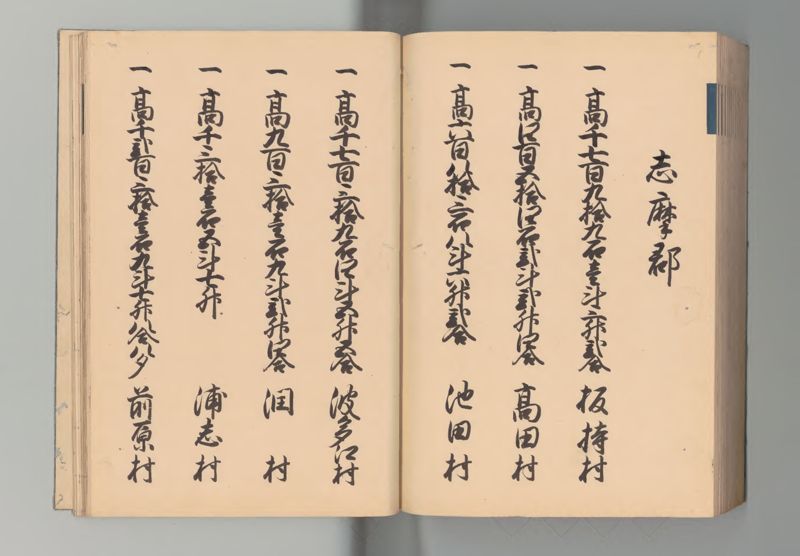 志摩郡
一髙千七百九拾九石壱斗三升弐合 板持村
一髙四百五拾四石弐斗弐升四合 髙田村
一髙六百八拾三石八斗六升弐合 池田村
一髙千七百三拾九石四斗五升五合 波多江村
一髙九百三拾壱石九斗弐升四合 潤村
一髙千三拾壱石五斗七升 浦志村
一髙千弐百三拾壱石九斗七升八合八夕 前原村